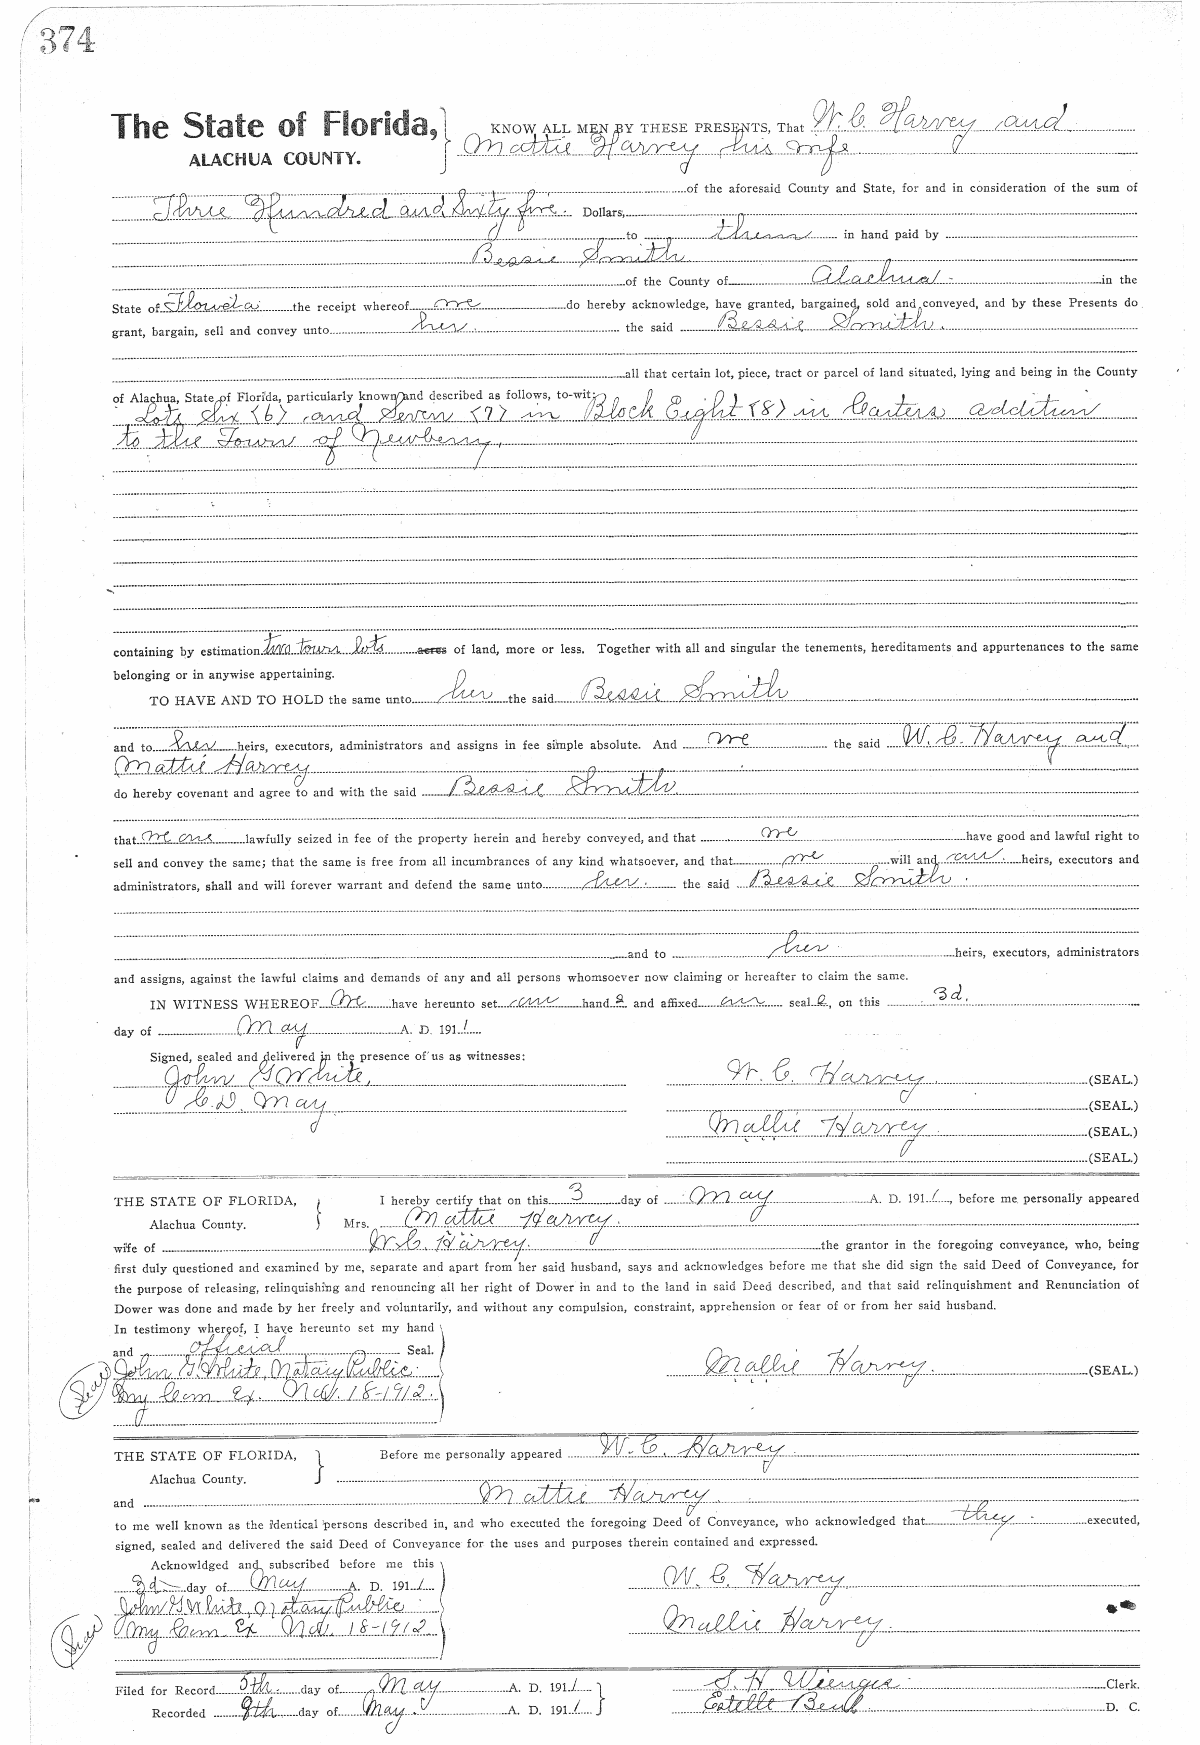 374
The State of Florida, KNOW ALL MEN BY THESE PRESENTS, That W. C. Harvey and
ALACHUA COUNTY. Mattie Harvey his wife
of the aforesaid County and State, for and in consideration of the sum of
Three Hundred and Sixty five. Dollars,
to them in hand paid by
Bessie Smith
of the County of Alachua in the
State of Florida the receipt whereof we do hereby acknowledge, have granted, bargained, sold and conveyed, and by these Presents do
grant, bargain, sell and convey unto her the said Bessie Smith.
all that certain lot, piece, tract or parcel of land situated, lying and being in the County
of Alachua, State of Florida, particularly known and described as follows, to-wit:
Lots Six (6) and Seven (7) in Block Eight (8) in Carters addition
to the Town of Newberry,
containing by estimation two town lots acres of land, more or less. Together with all and singular the tenements, hereditaments and appurtenances to the same
belonging or in anywise appertaining.
TO HAVE AND TO HOLD the same unto her the said Bessie Smith
and to her heirs, executors, administrators and assigns in fee simple absolute. And we the said W. C. Harvey and
Mattie Harvey
do hereby covenant and agree to and with the said Bessie Smith
that we are lawfully seized in fee of the property herein and hereby conveyed, and that we have good and lawful right to
sell and convey the same; that the same is free from all incumbrances of any kind whatsoever, and that we will and our heirs, executors and
administrators, shall and will forever warrant and defend the same unto her the said Bessie Smith.
and to her heirs, executors, administrators
and assigns, against the lawful claims and demands of any and all persons whomsoever now claiming or hereafter to claim the same.
IN WITNESS WHEREOF We have hereunto set our hand s and affixed our seal s, on this 3d.
day of May A. D. 1911
Signed, sealed and delivered in the presence of us as witnesses:
John G White, W. C. Harvey (SEAL.)
C. D. May (SEAL.)
Mallie Harvey (SEAL.)
(SEAL.)
THE STATE OF FLORIDA, I hereby certify that on this 3 day of May A. D. 1911, before me personally appeared
Alachua County. Mrs. Mattie Harvey.
wife of W. C. Harvey. the grantor in the foregoing conveyance, who, being
first duly questioned and examined by me, separate and apart from her said husband, says and acknowledges before me that she did sign the said Deed of Conveyance, for
the purpose of releasing, relinquishing and renouncing all her right of Dower in and to the land in said Deed described, and that said relinquishment and Renunciation of
Dower was done and made by her freely and voluntarily, and without any compulsion, constraint, apprehension or fear of or from her said husband.
In testimony whereof, I have hereunto set my hand
and official Seal.
Seal John G. White, Notary Public Mallie Harvey. (SEAL.)
My Com. Ex. Nov. 18-1912.
THE STATE OF FLORIDA, Before me personally appeared W. C. Harvey
Alachua County.
and Mattie Harvey.
to me well known as the identical persons described in, and who executed the foregoing Deed of Conveyance, who acknowledged that they executed,
signed, sealed and delivered the said Deed of Conveyance for the uses and purposes therein contained and expressed.
Acknowldged and subscribed before me this
3d day of May A. D. 1911 W. C. Harvey
John G White, Notary Public
Seal My Com Ex Nov. 18-1912 Mallie Harvey.
Filed for Record 5th. day of May A. D. 1911 S. H. Wienges Clerk.
Recorded 8th day of May. A. D. 1911 Estelle D. C.